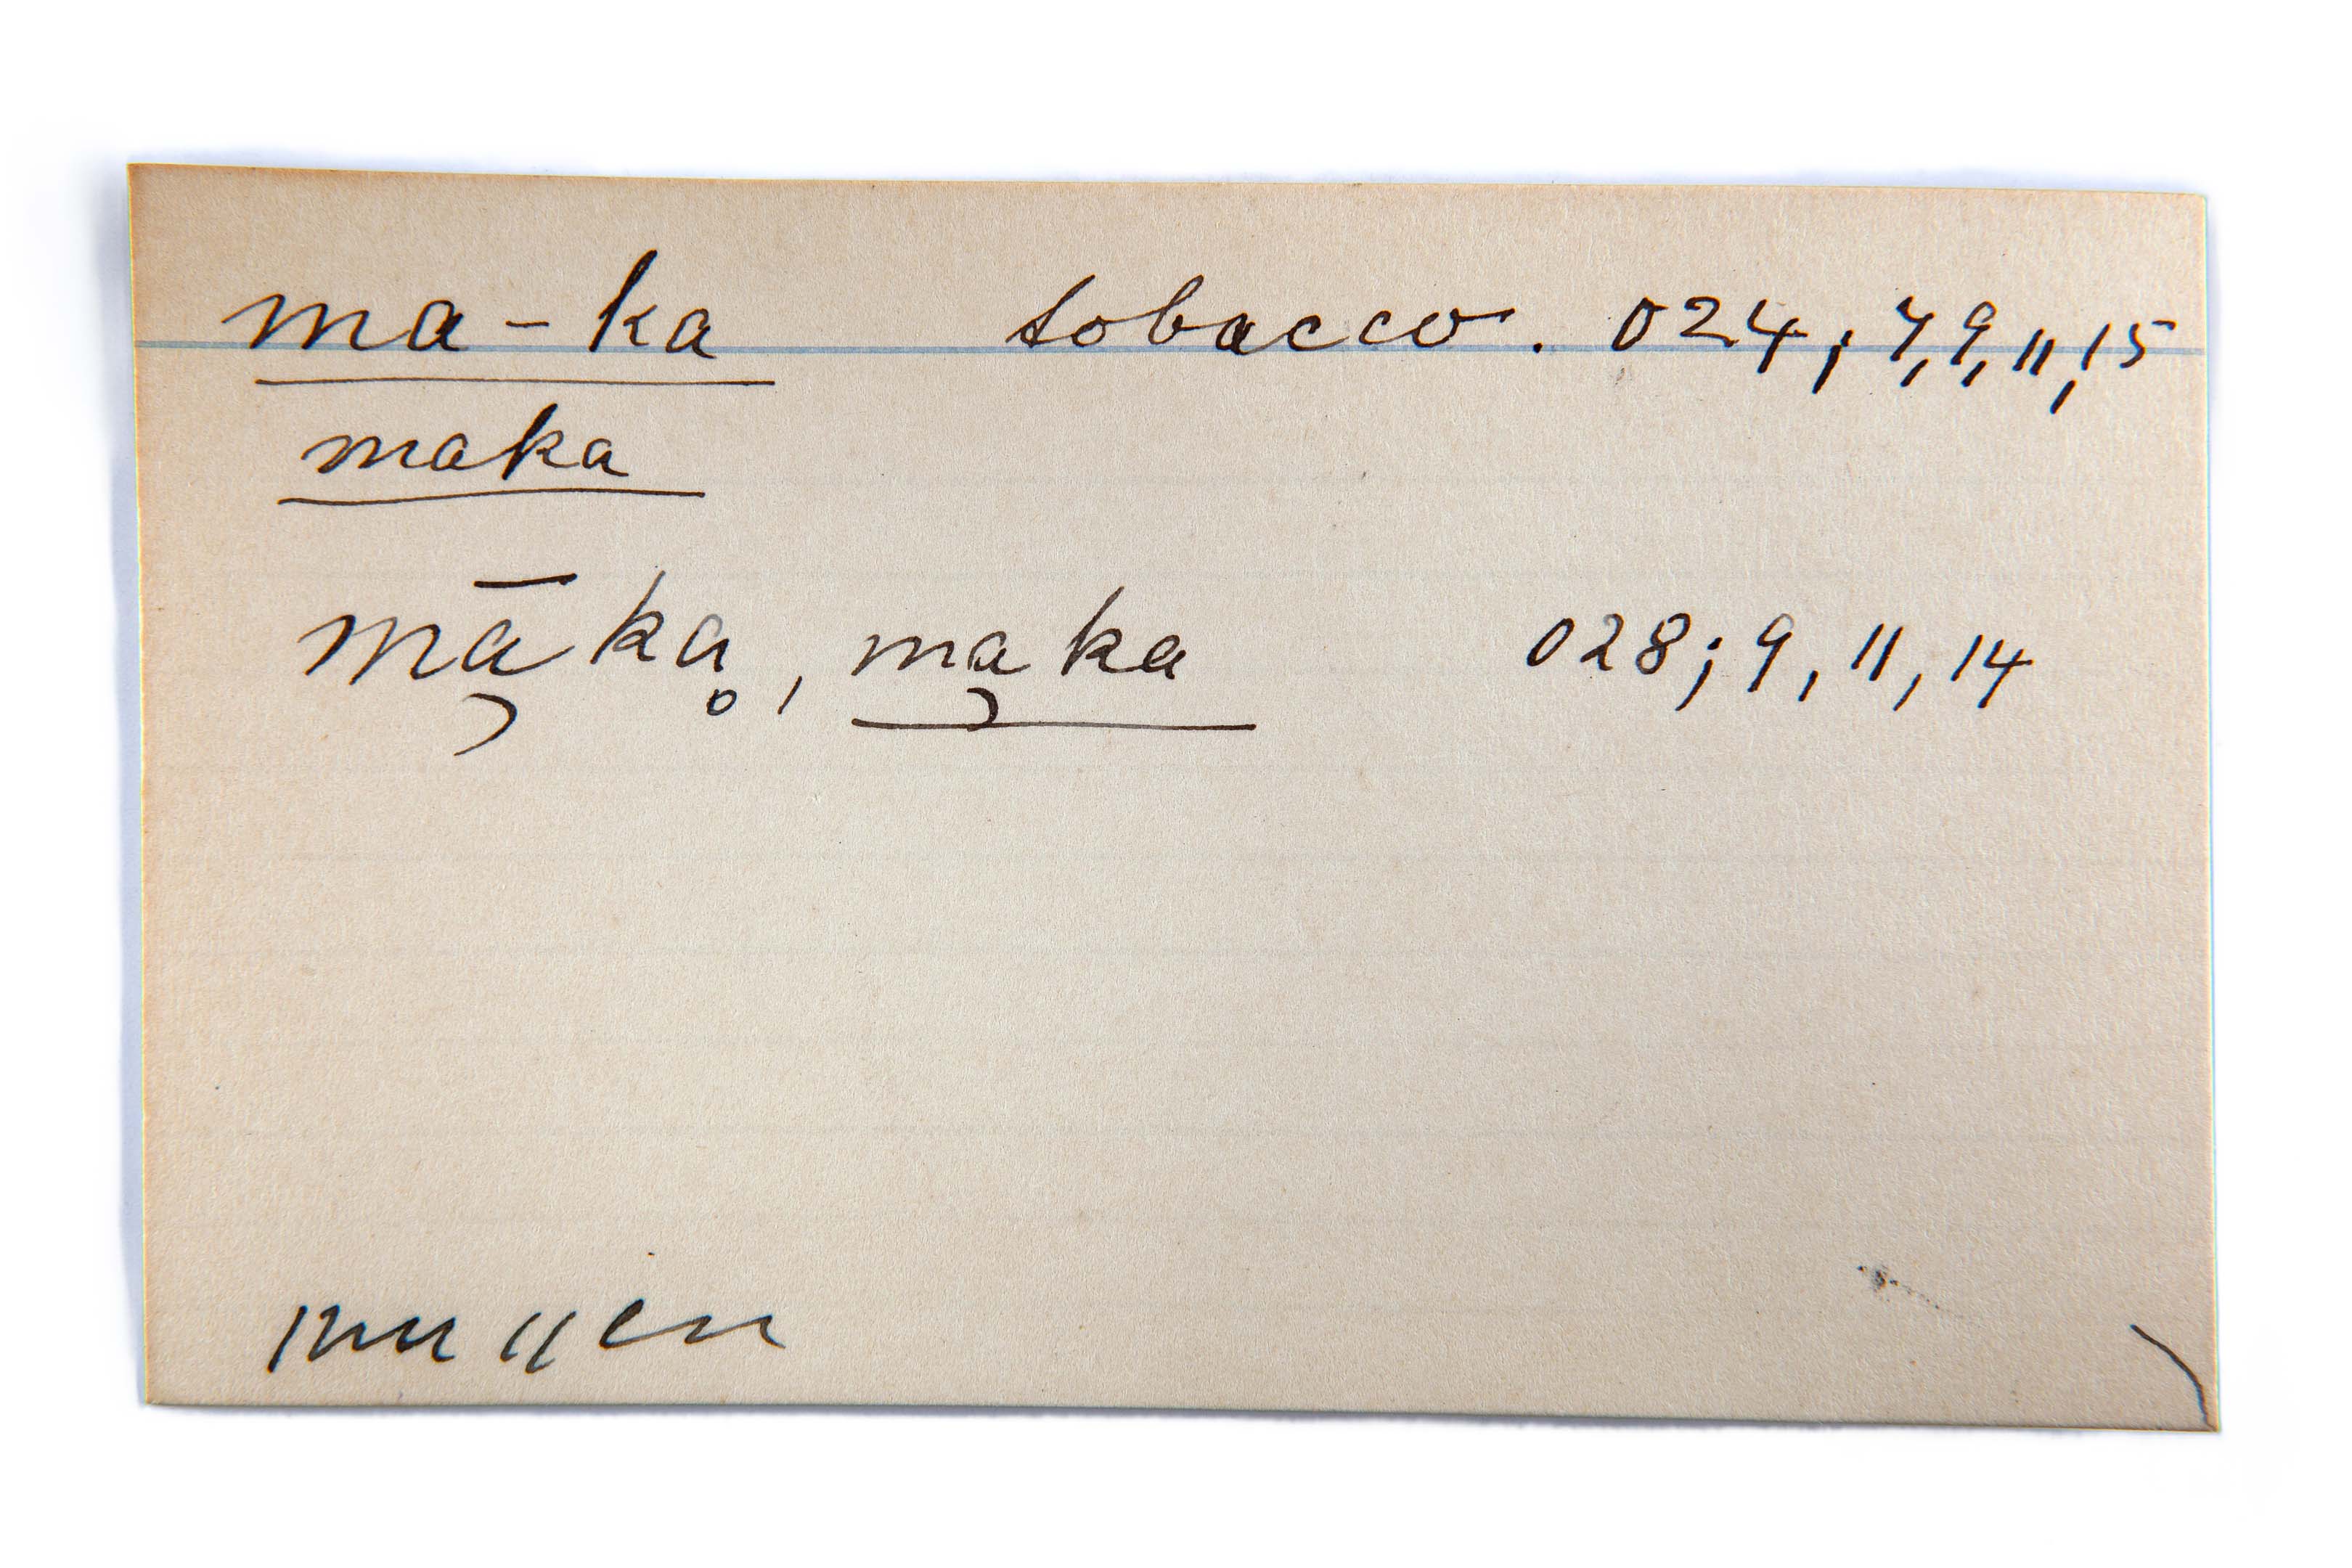 ma-ka tobacco. 024; 7, 9, 11, 15
maka
mą̄kḁ, mąka 028; 9, 11, 14